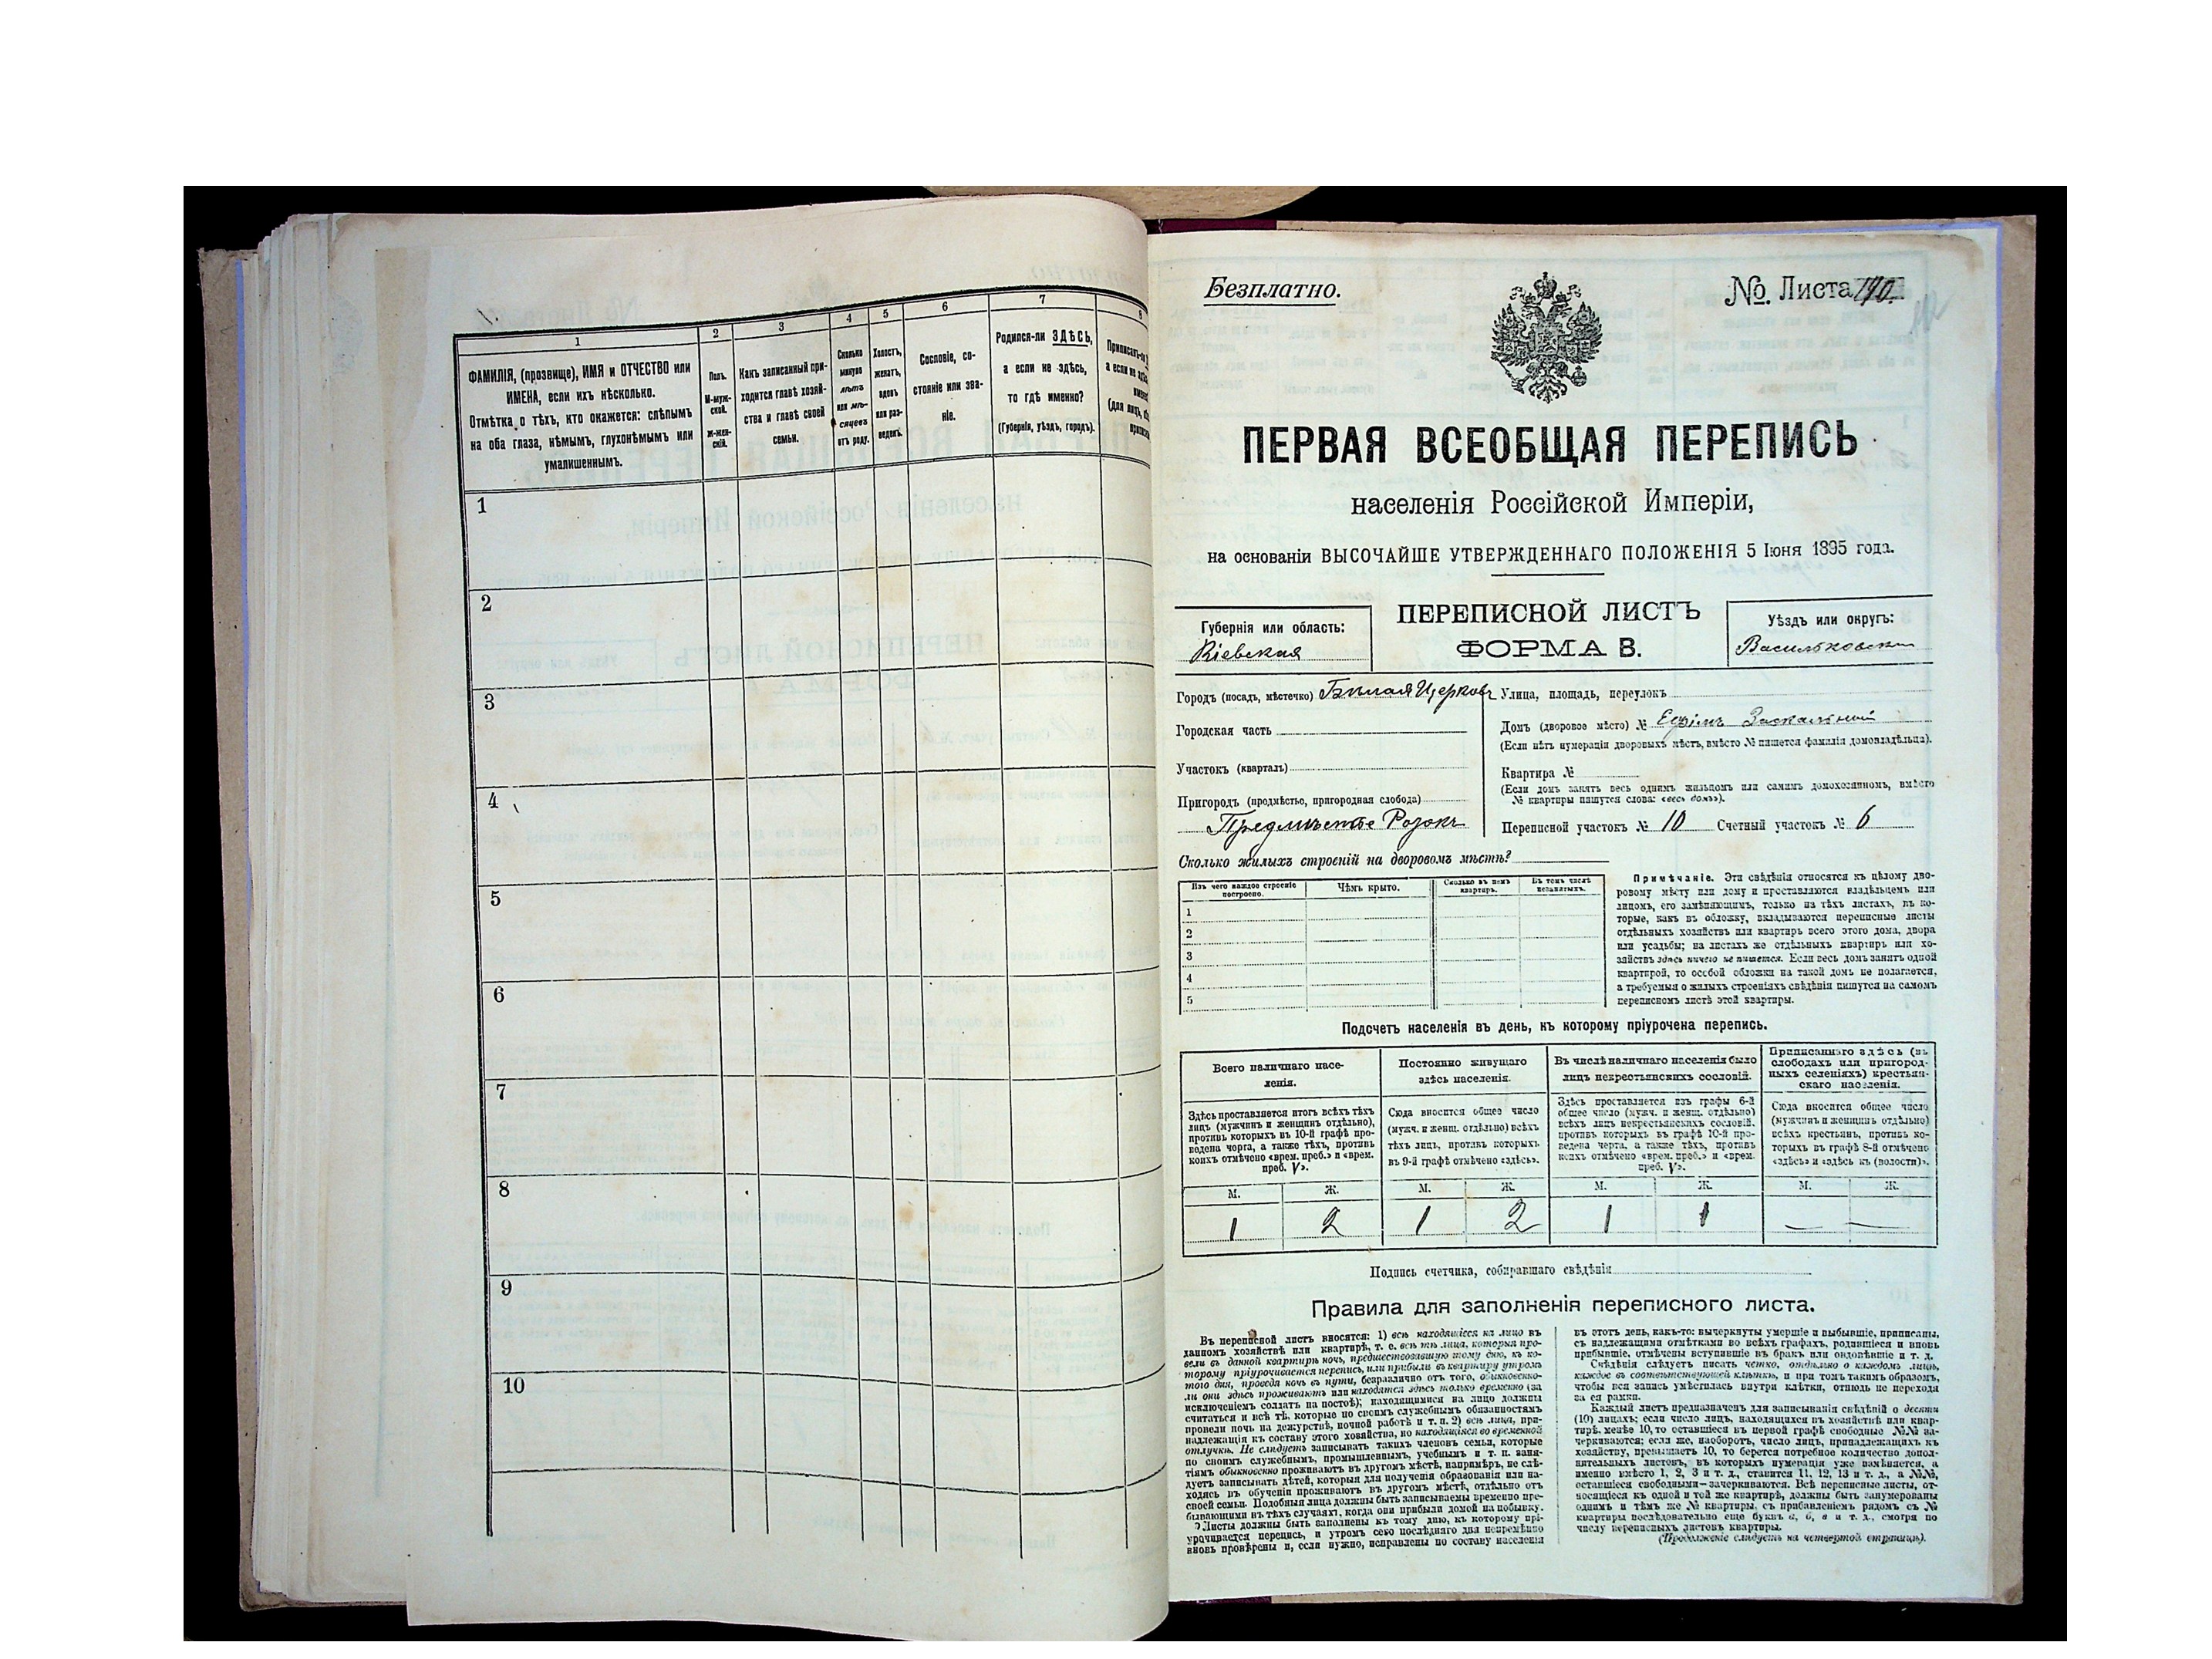 1
2
3
4
5
6
7
8
ФАМИЛІЯ, (прозвище), ИМЯ и ОТЧЕСТВО или
ИМЕНА, если ихъ нѣсколько.
Отмѣтка о тѣхъ, кто окажется: слѣпымъ
на оба глаза, нѣмымъ, глухонѣмымъ или
умалишеннымъ.
Полъ.
М-муж-
ской.
Ж-жен-
скій.
Какъ записанный при-
ходится главѣ хозяй-
ства и главѣ своей
семьи.
Сколько
минуло
лѣтъ
или мѣ-
сяцевъ
отъ роду.
Холостъ,
женатъ,
вдовъ
или раз-
веденъ.
Сословіе, со-
стояніе или зва-
ніе.
Родился-ли ЗДѢСЬ,
а если не здѣсь,
то гдѣ именно?
(Губернія, уѣздъ, городъ).
1
2
3
4
5
6
7
8
9
10
Безплатно.
№. Листа 190.
ПЕРВАЯ ВСЕОБЩАЯ ПЕРЕПИСЬ
населенія Россійской Имперіи,
на основаніи ВЫСОЧАЙШЕ УТВЕРЖДЕННАГО ПОЛОЖЕНІЯ 5 Іюня 1895 года.
Губернія или область:
Кіевская
ПЕРЕПИСНОЙ ЛИСТЪ
ФОРМА В.
Уѣздъ или округъ:
Васильковскій
Городъ (посадъ, мѣстечко) Бѣлая Церковь
Городская часть
Участокъ (кварталъ)
Пригородъ (предмѣстье, пригородная слобода)
Предмѣстье Розокъ
Улица, площадь, переулокъ
Домъ (дворовое мѣсто) № Ефимъ
(Если нѣтъ нумераціи дворовыхъ мѣстъ, вмѣсто № пишется фамилія домовладѣльца).
Квартира №
(Если домъ занятъ весь однимъ жильцомъ или самимъ домохозяиномъ, вмѣсто
№ квартиры пишутся слова: «весь домъ»).
Переписной участокъ № 10 Счетный участокъ № 6
Сколько жилыхъ строеній на дворовомъ мѣстѣ?
Изъ чего каждое строеніе
построено.
Чѣмъ крыто.
Сколько въ немъ
квартиръ.
Въ томъ числѣ
незанятыхъ.
1
2
3
4
5
Примѣчаніе. Эти свѣдѣнія относятся къ цѣлому дво-
ровому мѣсту или дому и проставляются владѣльцемъ или
лицомъ, его замѣняющимъ, только на тѣхъ листахъ, въ ко-
торые, какъ въ обложку, вкладываются переписные листы
отдѣльныхъ хозяйствъ или квартиръ всего этого дома, двора
или усадьбы; на листахъ же отдѣльныхъ квартиръ или хо-
зяйствъ здѣсь ничего не пишется. Если весь домъ занятъ одной
квартирой, то особой обложки на такой домъ не полагается,
а требуемыя о жилыхъ строеніяхъ свѣдѣнія пишутся на самомъ
переписномъ листѣ этой квартиры.
Подсчетъ населенія въ день, къ которому пріурочена перепись.
Всего наличнаго насе-
ленія.
Постоянно живущаго
здѣсь населенія.
Въ числѣ наличнаго населенія было
лицъ некрестьянскихъ сословій.
Приписаннаго здѣсь (въ
слободахъ или пригород-
ныхъ селеніяхъ) крестьян-
скаго населенія.
Здѣсь проставляется итогъ всѣхъ тѣхъ
лицъ (мужчинъ и женщинъ отдѣльно),
противъ которыхъ въ 10-й графѣ про-
ведена черта, а также тѣхъ, противъ
коихъ отмѣчено «врем. преб.» и «врем.
преб. V».
Сюда вносится общее число
(мужч. и женщ. отдѣльно) всѣхъ
тѣхъ лицъ, противъ которыхъ
въ 9-й графѣ отмѣчено «здѣсь».
Здѣсь проставляется изъ графы 6-й
общее число (мужч. и женщ. отдѣльно)
всѣхъ лицъ некрестьянскихъ сословій,
противъ которыхъ въ графѣ 10-й про-
ведена черта, а также тѣхъ, противъ
коихъ отмѣчено «врем. преб.» и «врем.
преб. V».
Сюда вносится общее число
(мужчинъ и женщинъ отдѣльно)
всѣхъ крестьянъ, противъ ко-
торыхъ въ графѣ 8-й отмѣчено
«здѣсь» и «здѣсь къ (волости)».
М. Ж. М. Ж. М. Ж. М. Ж.
1 2 1 2 1 1 — —
Подпись счетчика, собиравшаго свѣдѣнія
Правила для заполненія переписного листа.
Въ переписной листъ вносятся: 1) всѣ находящіеся на лицо въ
данномъ хозяйствѣ или квартирѣ, т. е. всѣ тѣ лица, которыя про-
вели въ данной квартирѣ ночь, предшествовавшую тому дню, къ ко-
торому пріурочивается перепись, или прибыли въ квартиру утромъ
того дня, проведя ночь въ пути, безразлично отъ того, обыкновенно-
ли они здѣсь проживаютъ или находятся здѣсь только временно (за
исключеніемъ солдатъ на постоѣ); находящимися на лицо должны
считаться и всѣ тѣ, которые по своимъ служебнымъ обязанностямъ
провели ночь на дежурствѣ, ночной работѣ и т. п. 2) всѣ лица, при-
надлежащія къ составу этого хозяйства, но находящіяся во временной
отлучкѣ. Не слѣдуетъ записывать такихъ членовъ семьи, которые
по своимъ служебнымъ, промышленнымъ, учебнымъ и т. п. заня-
тіямъ обыкновенно проживаютъ въ другомъ мѣстѣ, напримѣръ, не слѣ-
дуетъ записывать дѣтей, которыя для полученія образованія или на-
ходясь въ обученіи проживаютъ въ другомъ мѣстѣ, отдѣльно отъ
своей семьи. Подобныя лица должны быть записываемы временно пре-
бывающими въ тѣхъ случаяхъ, когда они прибыли домой на побывку.
Листы должны быть заполнены къ тому дню, къ которому прі-
урочивается перепись, и утромъ сего послѣдняго дня непремѣнно
вновь провѣрены и, если нужно, исправлены по составу населенія
въ этотъ день, какъ-то: вычеркнуты умершіе и выбывшіе, приписаны,
съ надлежащими отмѣтками во всѣхъ графахъ, родившіеся и вновь
прибывшіе, отмѣчены вступившіе въ бракъ или овдовѣвшіе и т. д.
Свѣдѣнія слѣдуетъ писать четко, отдѣльно о каждомъ лицѣ,
каждое въ соотвѣтствующей клѣткѣ, и при томъ такимъ образомъ,
чтобы вся запись умѣстилась внутри клѣтки, отнюдь не переходя
за ея рамки.
Каждый листъ предназначенъ для записыванія свѣдѣній о десяти
(10) лицахъ; если число лицъ, находящихся въ хозяйствѣ или квар-
тирѣ, менѣе 10, то оставшіеся въ первой графѣ свободные №№ за-
черкиваются; если же, наоборотъ, число лицъ, принадлежащихъ къ
хозяйству, превышаетъ 10, то берется потребное количество допол-
нительныхъ листовъ, въ которыхъ нумерація уже измѣняется, а
именно вмѣсто 1, 2, 3 и т. д., ставится 11, 12, 13 и т. д., а №№,
оставшіеся свободными—зачеркиваются. Всѣ переписные листы, от-
носящіеся къ одной и той же квартирѣ, должны быть занумерованы
однимъ и тѣмъ же № квартиры, съ прибавленіемъ рядомъ съ №
квартиры послѣдовательно еще буквъ а, б, в и т. д., смотря по
числу переписныхъ листовъ квартиры.
(Продолженіе слѣдуетъ на четвертой страницѣ).